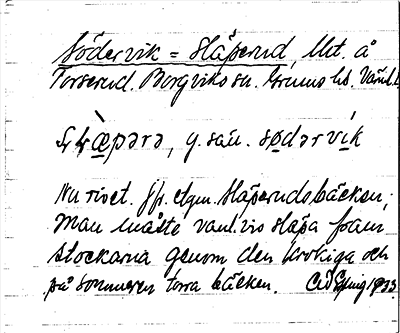 Södervik = Släperud, lht. å
Torserud. Borgviks sn. Grums hd. Värml.
g. san. sødərvik
Nu rivet. Jfr. ägn. Släperudsbäcken;
Man måste vanl.vis släpa fram
stockarna genom den krokiga och
på sommaren torra bäcken. 1933.